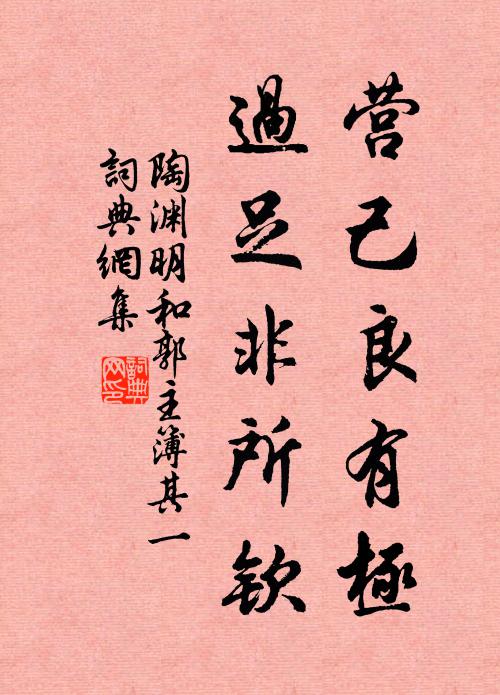 营己良有極
過足非所欽
陶渊明和郭主簿其一
詞典網集
詞典
网印